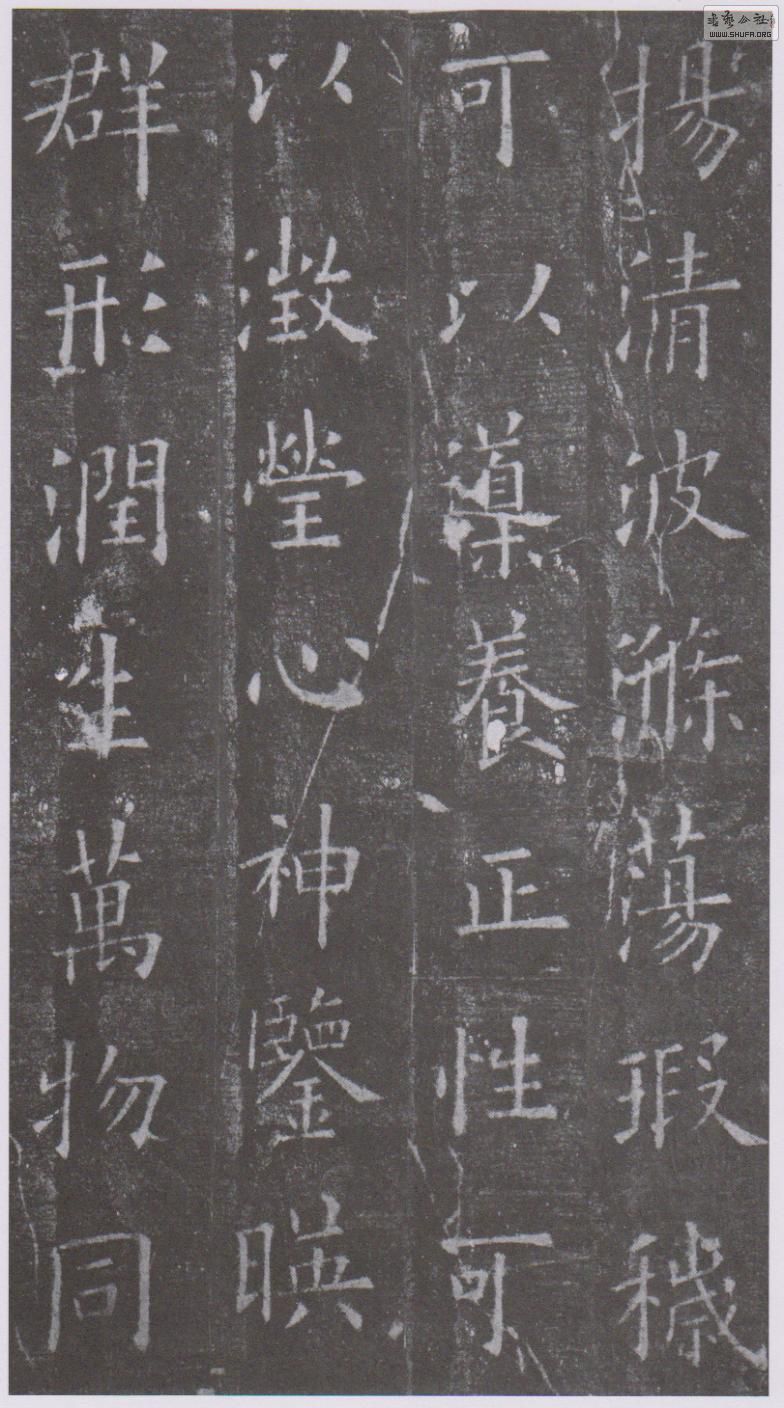 揚清波滌蕩瑕穢
可以導養正性可
以澂瑩心神鑒暎
群形潤生萬物同
书艺公社
WWW.SHUFA.ORG